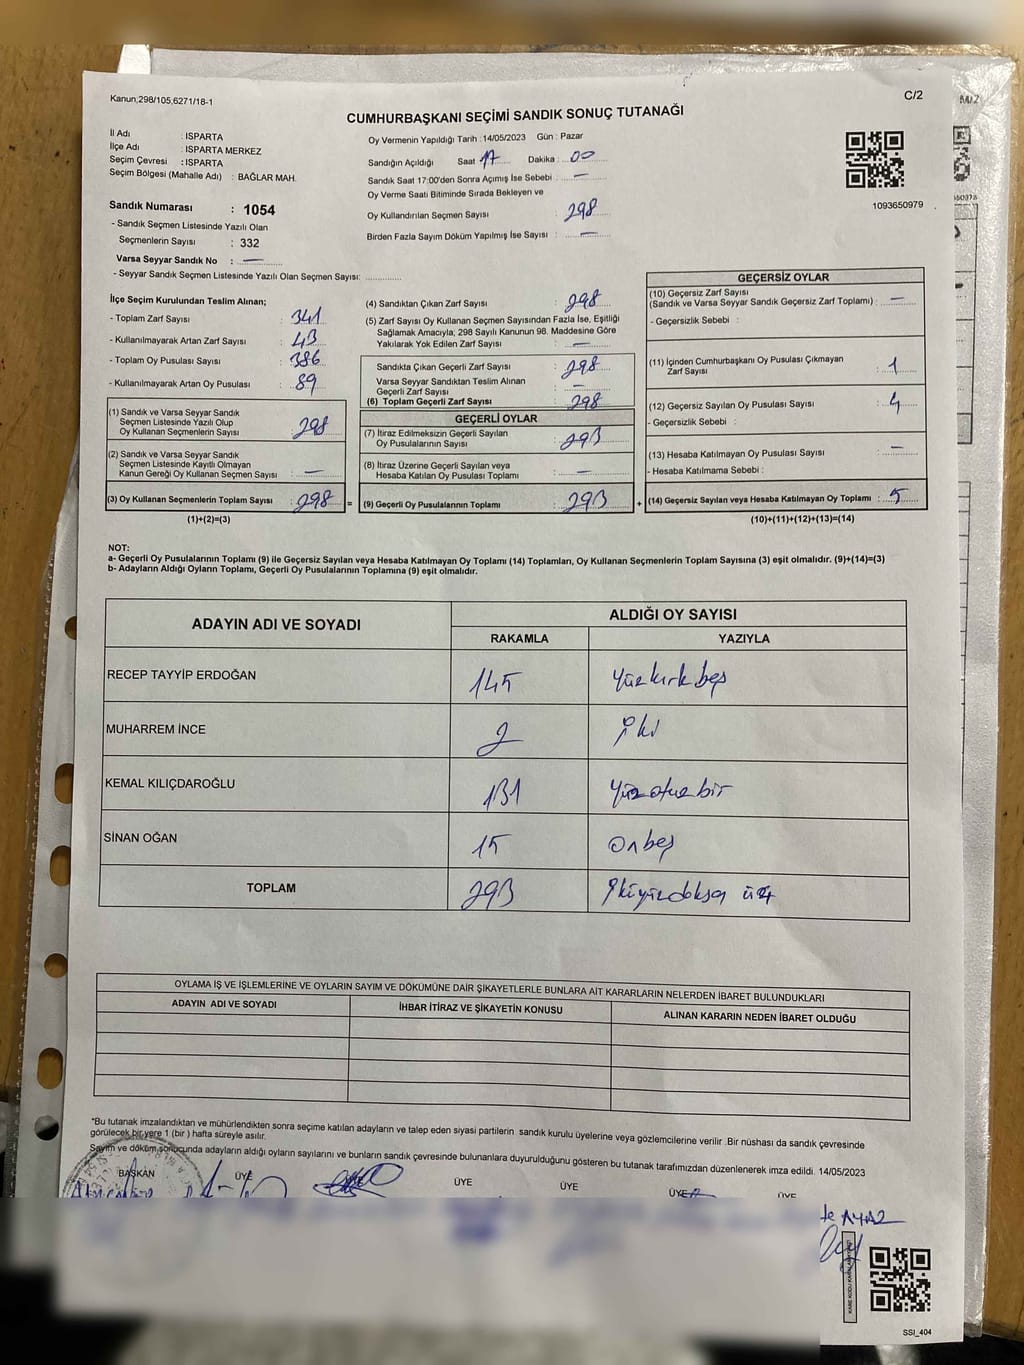 Kanun;298/105,6271/18-1
C/2
CUMHURBAŞKANI SEÇİMİ SANDIK SONUÇ TUTANAĞI
İl Adı : ISPARTA
İlçe Adı : ISPARTA MERKEZ
Seçim Çevresi : ISPARTA
Seçim Bölgesi (Mahalle Adı) : BAĞLAR MAH.
Oy Vermenin Yapıldığı Tarih : 14/05/2023 Gün : Pazar
Sandığın Açıldığı Saat 17 Dakika : 00
Sandık Saat 17:00'den Sonra Açımış İse Sebebi : —
Oy Verme Saati Bitiminde Sırada Bekleyen ve
Oy Kullandırılan Seçmen Sayısı : 298
Birden Fazla Sayım Döküm Yapılmış İse Sayısı : —
1093650979
Sandık Numarası : 1054
- Sandık Seçmen Listesinde Yazılı Olan
Seçmenlerin Sayısı : 332
Varsa Seyyar Sandık No : —
- Seyyar Sandık Seçmen Listesinde Yazılı Olan Seçmen Sayısı:
İlçe Seçim Kurulundan Teslim Alınan;
- Toplam Zarf Sayısı : 341
- Kullanılmayarak Artan Zarf Sayısı : 43
- Toplam Oy Pusulası Sayısı : 386
- Kullanılmayarak Artan Oy Pusulası : 89
(1) Sandık ve Varsa Seyyar Sandık
Seçmen Listesinde Yazılı Olup
Oy Kullanan Seçmenlerin Sayısı : 298
(2) Sandık ve Varsa Seyyar Sandık
Seçmen Listesinde Kayıtlı Olmayan
Kanun Gereği Oy Kullanan Seçmen Sayısı : —
(3) Oy Kullanan Seçmenlerin Toplam Sayısı : 298 =
(1)+(2)=(3)
(4) Sandıktan Çıkan Zarf Sayısı : 298
(5) Zarf Sayısı Oy Kullanan Seçmen Sayısından Fazla İse, Eşitliği
Sağlamak Amacıyla, 298 Sayılı Kanunun 98. Maddesine Göre
Yakılarak Yok Edilen Zarf Sayısı : —
Sandıkta Çıkan Geçerli Zarf Sayısı : 298
Varsa Seyyar Sandıktan Teslim Alınan
Geçerli Zarf Sayısı : —
(6) Toplam Geçerli Zarf Sayısı : 298
GEÇERLİ OYLAR
(7) İtiraz Edilmeksizin Geçerli Sayılan
Oy Pusulalarının Sayısı : 293
(8) İtiraz Üzerine Geçerli Sayılan veya
Hesaba Katılan Oy Pusulası Toplamı : —
(9) Geçerli Oy Pusulalarının Toplamı : 293 +
GEÇERSİZ OYLAR
(10) Geçersiz Zarf Sayısı
(Sandık ve Varsa Seyyar Sandık Geçersiz Zarf Toplamı) : —
- Geçersizlik Sebebi :
(11) İçinden Cumhurbaşkanı Oy Pusulası Çıkmayan
Zarf Sayısı : 1
(12) Geçersiz Sayılan Oy Pusulası Sayısı : 4
- Geçersizlik Sebebi :
(13) Hesaba Katılmayan Oy Pusulası Sayısı : —
- Hesaba Katılmama Sebebi :
(14) Geçersiz Sayılan veya Hesaba Katılmayan Oy Toplamı : 5
(10)+(11)+(12)+(13)=(14)
NOT:
a- Geçerli Oy Pusulalarının Toplamı (9) ile Geçersiz Sayılan veya Hesaba Katılmayan Oy Toplamı (14) Toplamları, Oy Kullanan Seçmenlerin Toplam Sayısına (3) eşit olmalıdır. (9)+(14)=(3)
b- Adayların Aldığı Oyların Toplamı, Geçerli Oy Pusulalarının Toplamına (9) eşit olmalıdır.
ADAYIN ADI VE SOYADI
ALDIĞI OY SAYISI
RAKAMLA YAZIYLA
RECEP TAYYİP ERDOĞAN 145 Yüzkırkbeş
MUHARREM İNCE 2 İki
KEMAL KILIÇDAROĞLU 131 Yüzotuzbir
SİNAN OĞAN 15 Onbeş
TOPLAM 293 İkiyüzdoksan üç
OYLAMA İŞ VE İŞLEMLERİNE VE OYLARIN SAYIM VE DÖKÜMÜNE DAİR ŞİKAYETLERLE BUNLARA AİT KARARLARIN NELERDEN İBARET BULUNDUKLARI
ADAYIN ADI VE SOYADI İHBAR İTİRAZ VE ŞİKAYETİN KONUSU ALINAN KARARIN NEDEN İBARET OLDUĞU
*Bu tutanak imzalandıktan ve mühürlendikten sonra seçime katılan adayların ve talep eden siyasi partilerin sandık kurulu üyelerine veya gözlemcilerine verilir .Bir nüshası da sandık çevresinde
görülecek bir yere 1 (bir) hafta süreyle asılır.
Sayım ve döküm sonucunda adayların aldığı oyların sayılarını ve bunların sandık çevresinde bulunanlara duyurulduğunu gösteren bu tutanak tarafımızdan düzenlenerek imza edildi. 14/05/2023
BAŞKAN ÜYE ÜYE ÜYE ÜYE ÜYE
AYAZ
SSİ_404